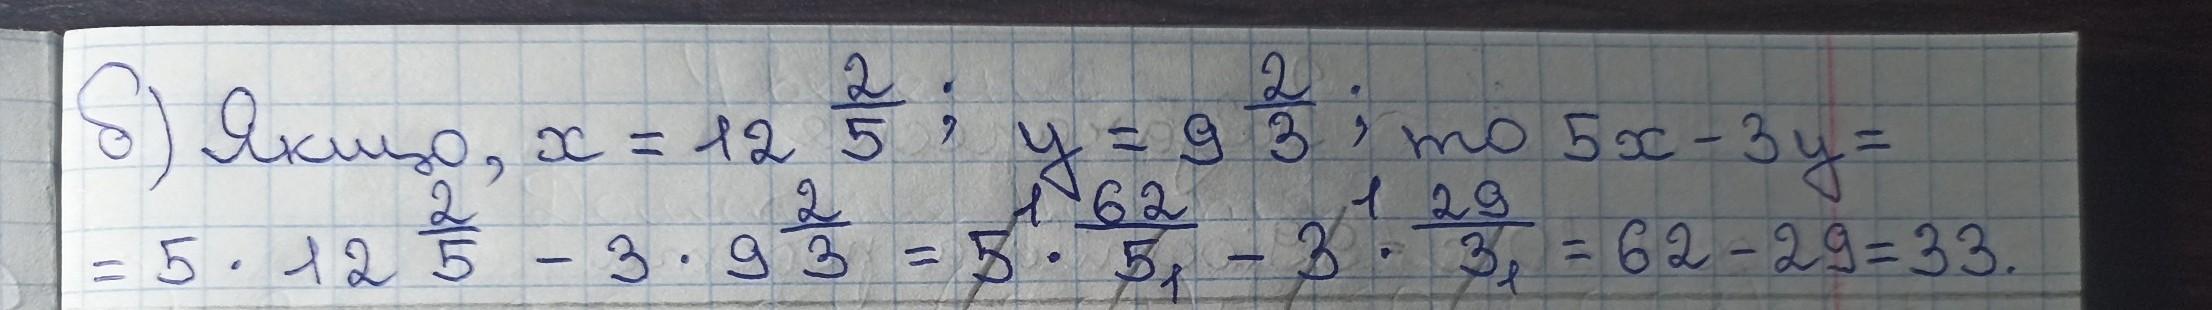 б) Якщо, x = 12 2/5; y = 9 2/3; то 5x - 3y =
= 5 · 12 2/5 - 3 · 9 2/3 = 5¹ · 62/5₁ - 3¹ · 29/3₁ = 62 - 29 = 33.